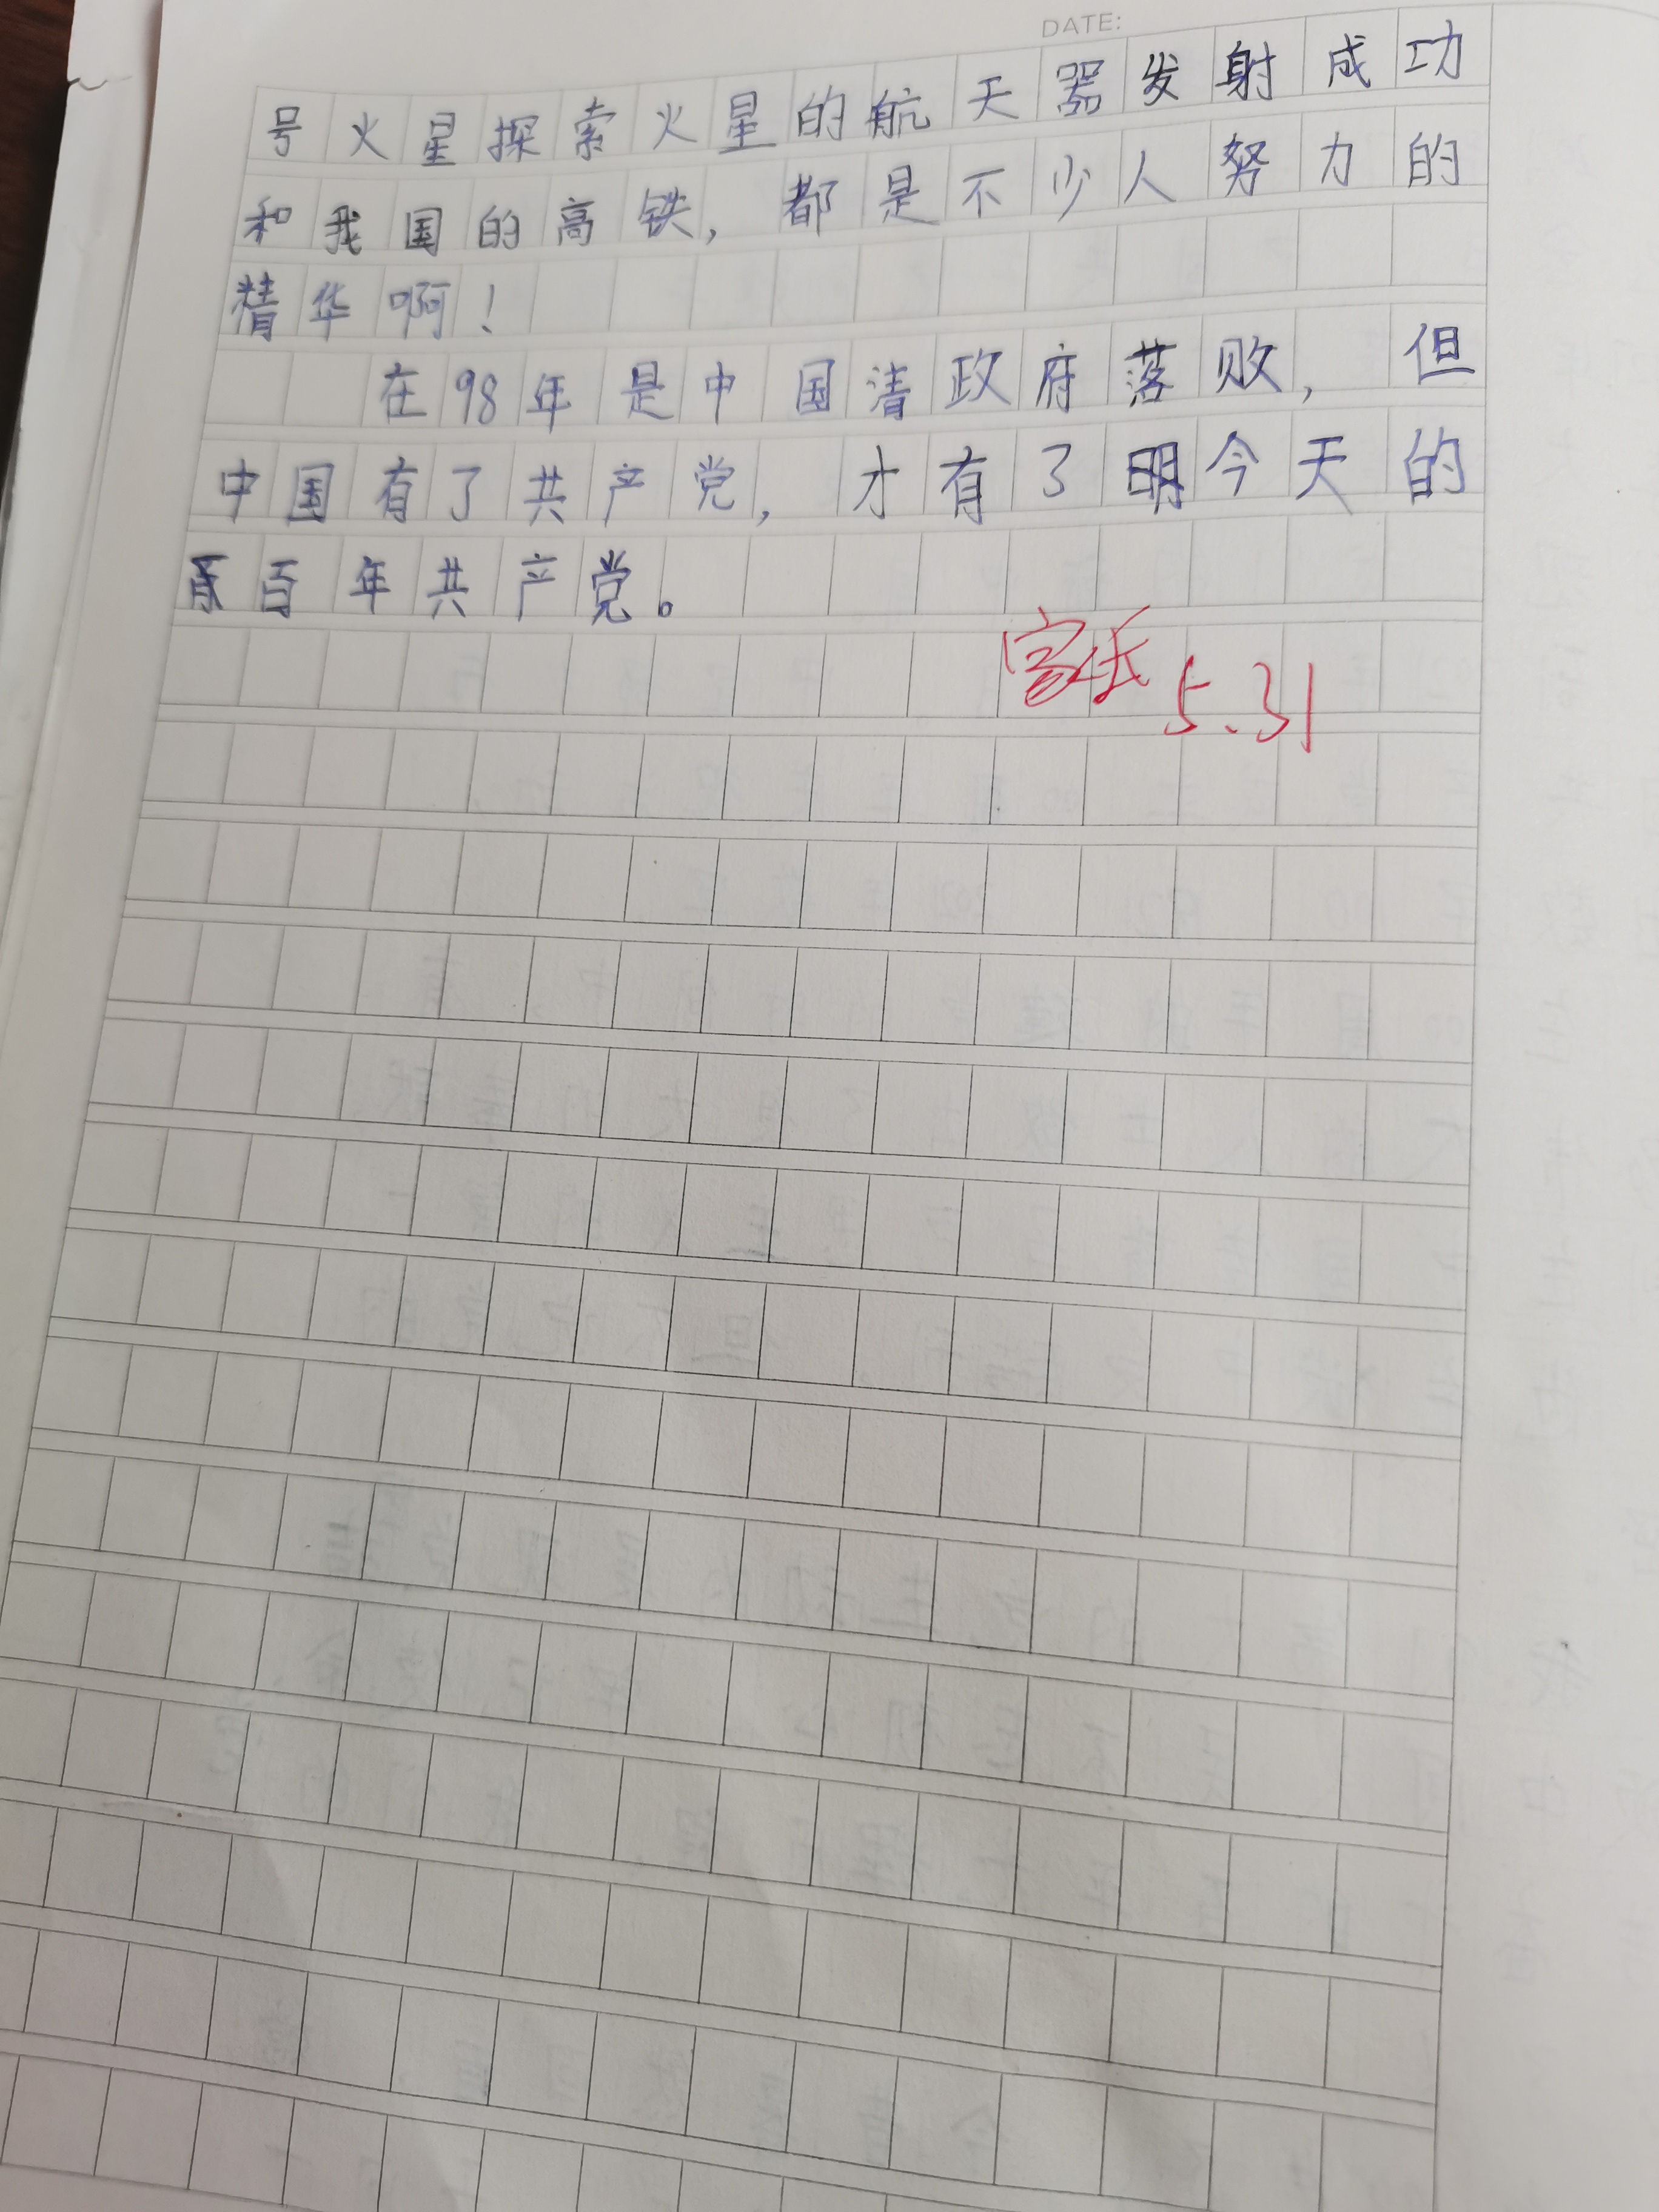 DATE:
号火星探索火星的航天器发射成功
和我国的高铁，都是不少人努力的
精华啊！
在98年是中国清政府落败，但
中国有了共产党，才有了明今天的
百年共产党。
5.31